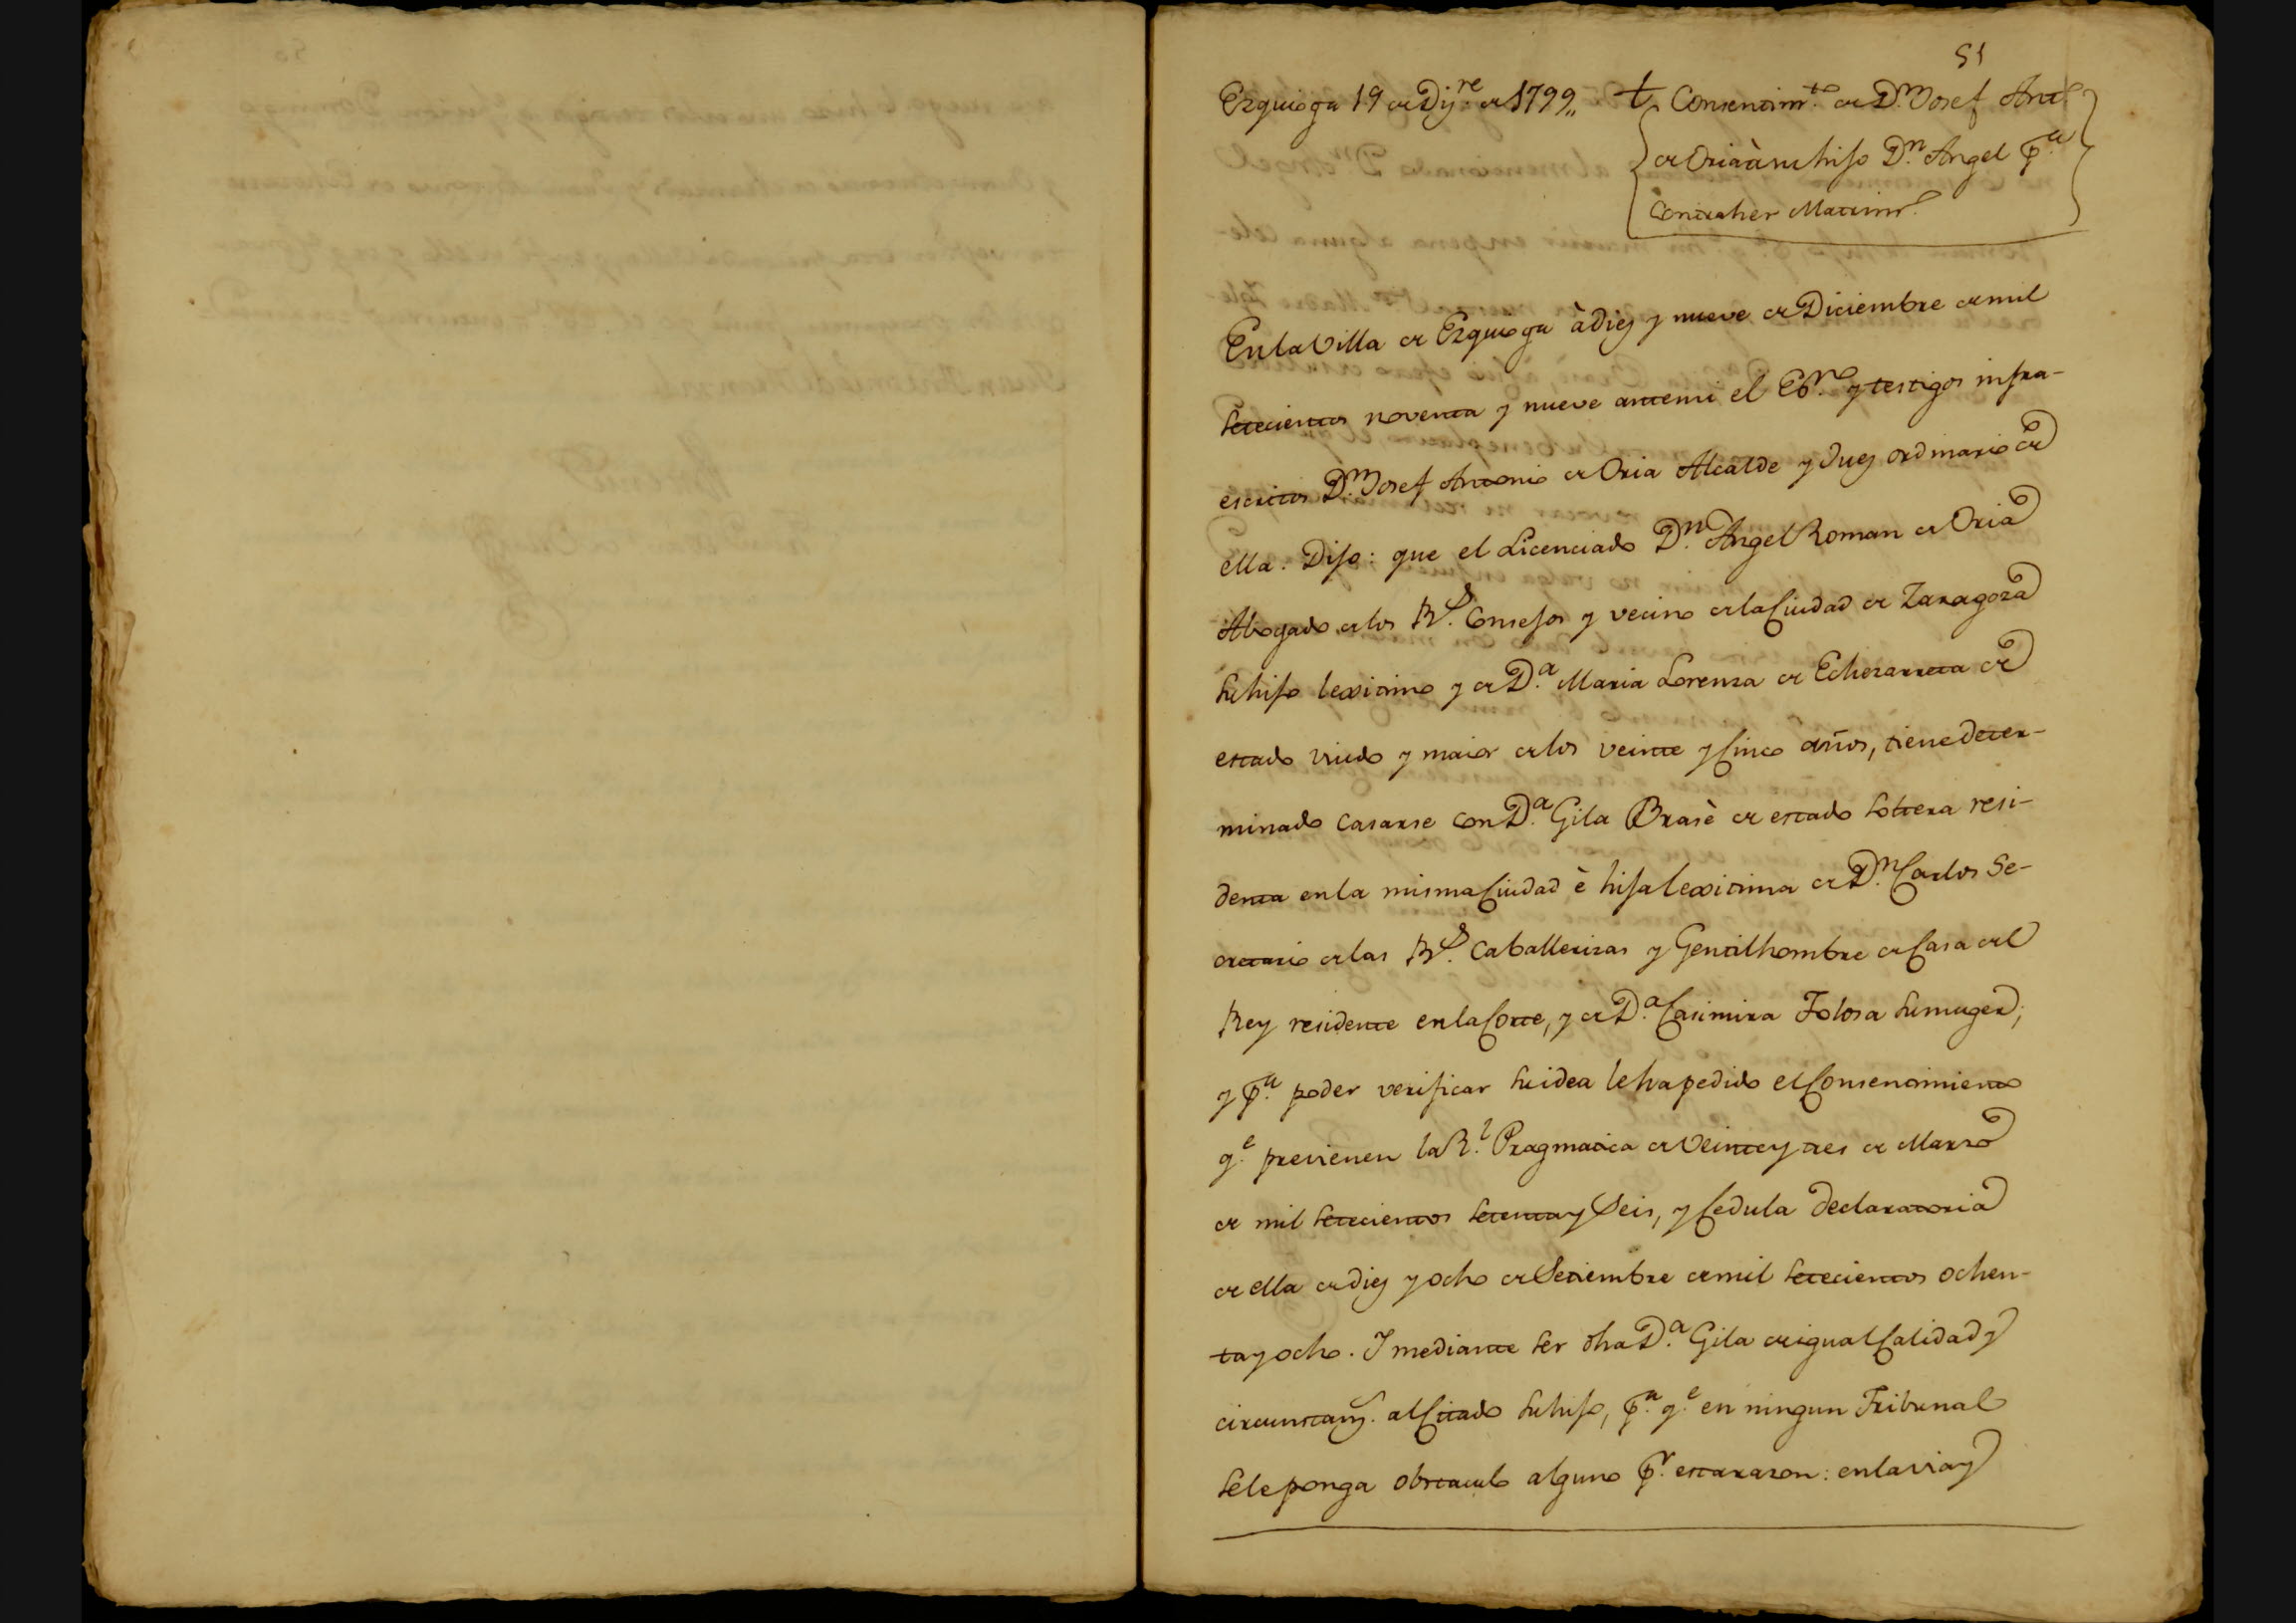 51
Ezquioga 19 de Diz.re de 1799,, t
Consentim.to de D.n Josef Ant.o
de Oria à su hijo D.n Angel p.a
Contraher Matrim.o
En la Villa de Ezquioga à diez y nueve de Diciembre de mil
setecientos noventa y nueve ante mi el Es.no y testigos infra-
escritos D.n Josef Antonio de Oria Alcalde y Juez ordinario de
ella. Dijo: que el Licenciado D.n Angel Roman de Oria
Abogado de los R.s Consejos y vecino de la Ciudad de Zaragoza
su hijo lexitimo y de D.a Maria Lorenza de Echezarreta de
estado viudo y maior de los veinte y Cinco años, tiene deter-
minado Casarse con D.a Gila Brasè de estado soltera resi-
denta en la misma Ciudad è hija lexitima de D.n Carlos Se-
cretario de las R.s Caballerizas y Gentilhombre de Casa del
Rey residente en la Corte, y de D.a Casimira Tolosa su muger;
y p.a poder verificar su idea le ha pedido el Consentimiento
q.e previenen la R.l Pragmatica de Veinte y tres de Marzo
de mil setecientos setenta y Seis, y Cedula declaratoria
de ella de diez y ocho de Setiembre de mil setecientos ochen-
ta y ocho. I mediante ser dha D.a Gila de igual Calidad y
circunstanz. al Citado su hijo, p.a q.e en ningun Tribunal
se le ponga obstaculo alguno p.r esta razon: en la via y